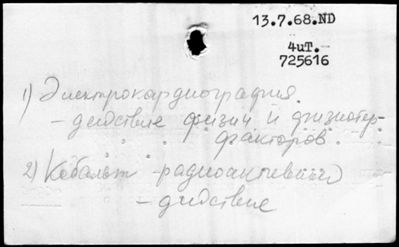 13.7.68.ND
4иТ.
725616
1) Электрокардиография.
- действие физич и физиотер-
" " " факторов.
2) Кобальт радиоактивный
- действие